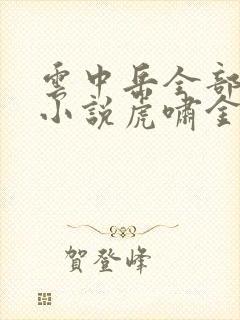 雲中岳全部
小說虎嘯金
賀登峰